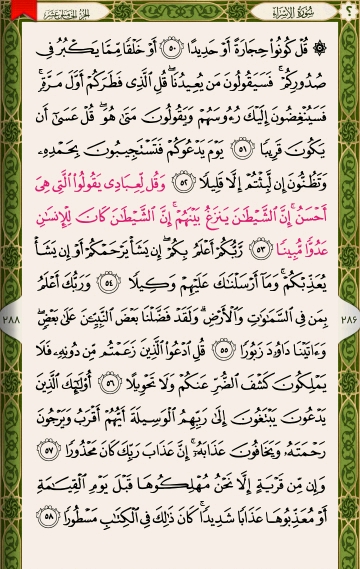 سُورَةُ الإِسْرَاء
الجُزءُ الخَامِسَ عَشَر
۞ قُلْ كُونُوا۟ حِجَارَةً أَوْ حَدِيدًا ﴿٥٠﴾ أَوْ خَلْقًا مِّمَّا يَكْبُرُ فِى
صُدُورِكُمْ ۚ فَسَيَقُولُونَ مَن يُعِيدُنَا ۖ قُلِ ٱلَّذِى فَطَرَكُمْ أَوَّلَ مَرَّةٍ ۚ
فَسَيُنْغِضُونَ إِلَيْكَ رُءُوسَهُمْ وَيَقُولُونَ مَتَىٰ هُوَ ۖ قُلْ عَسَىٰٓ أَن
يَكُونَ قَرِيبًا ﴿٥١﴾ يَوْمَ يَدْعُوكُمْ فَتَسْتَجِيبُونَ بِحَمْدِهِۦ
وَتَظُنُّونَ إِن لَّبِثْتُمْ إِلَّا قَلِيلًا ﴿٥٢﴾ وَقُل لِّعِبَادِى يَقُولُوا۟ ٱلَّتِى هِىَ
أَحْسَنُ ۚ إِنَّ ٱلشَّيْطَـٰنَ يَنزَغُ بَيْنَهُمْ ۚ إِنَّ ٱلشَّيْطَـٰنَ كَانَ لِلْإِنسَـٰنِ
عَدُوًّا مُّبِينًا ﴿٥٣﴾ رَّبُّكُمْ أَعْلَمُ بِكُمْ ۖ إِن يَشَأْ يَرْحَمْكُمْ أَوْ إِن يَشَأْ
يُعَذِّبْكُمْ ۚ وَمَآ أَرْسَلْنَـٰكَ عَلَيْهِمْ وَكِيلًا ﴿٥٤﴾ وَرَبُّكَ أَعْلَمُ
بِمَن فِى ٱلسَّمَـٰوَٰتِ وَٱلْأَرْضِ ۗ وَلَقَدْ فَضَّلْنَا بَعْضَ ٱلنَّبِيِّـۧنَ عَلَىٰ بَعْضٍ ۖ
وَءَاتَيْنَا دَاوُۥدَ زَبُورًا ﴿٥٥﴾ قُلِ ٱدْعُوا۟ ٱلَّذِينَ زَعَمْتُم مِّن دُونِهِۦ فَلَا
يَمْلِكُونَ كَشْفَ ٱلضُّرِّ عَنكُمْ وَلَا تَحْوِيلًا ﴿٥٦﴾ أُو۟لَـٰٓئِكَ ٱلَّذِينَ
يَدْعُونَ يَبْتَغُونَ إِلَىٰ رَبِّهِمُ ٱلْوَسِيلَةَ أَيُّهُمْ أَقْرَبُ وَيَرْجُونَ
رَحْمَتَهُۥ وَيَخَافُونَ عَذَابَهُۥٓ ۚ إِنَّ عَذَابَ رَبِّكَ كَانَ مَحْذُورًا ﴿٥٧﴾
وَإِن مِّن قَرْيَةٍ إِلَّا نَحْنُ مُهْلِكُوهَا قَبْلَ يَوْمِ ٱلْقِيَـٰمَةِ
أَوْ مُعَذِّبُوهَا عَذَابًا شَدِيدًا ۚ كَانَ ذَٰلِكَ فِى ٱلْكِتَـٰبِ مَسْطُورًا ﴿٥٨﴾
٢٨٦
٢٨٨
؟